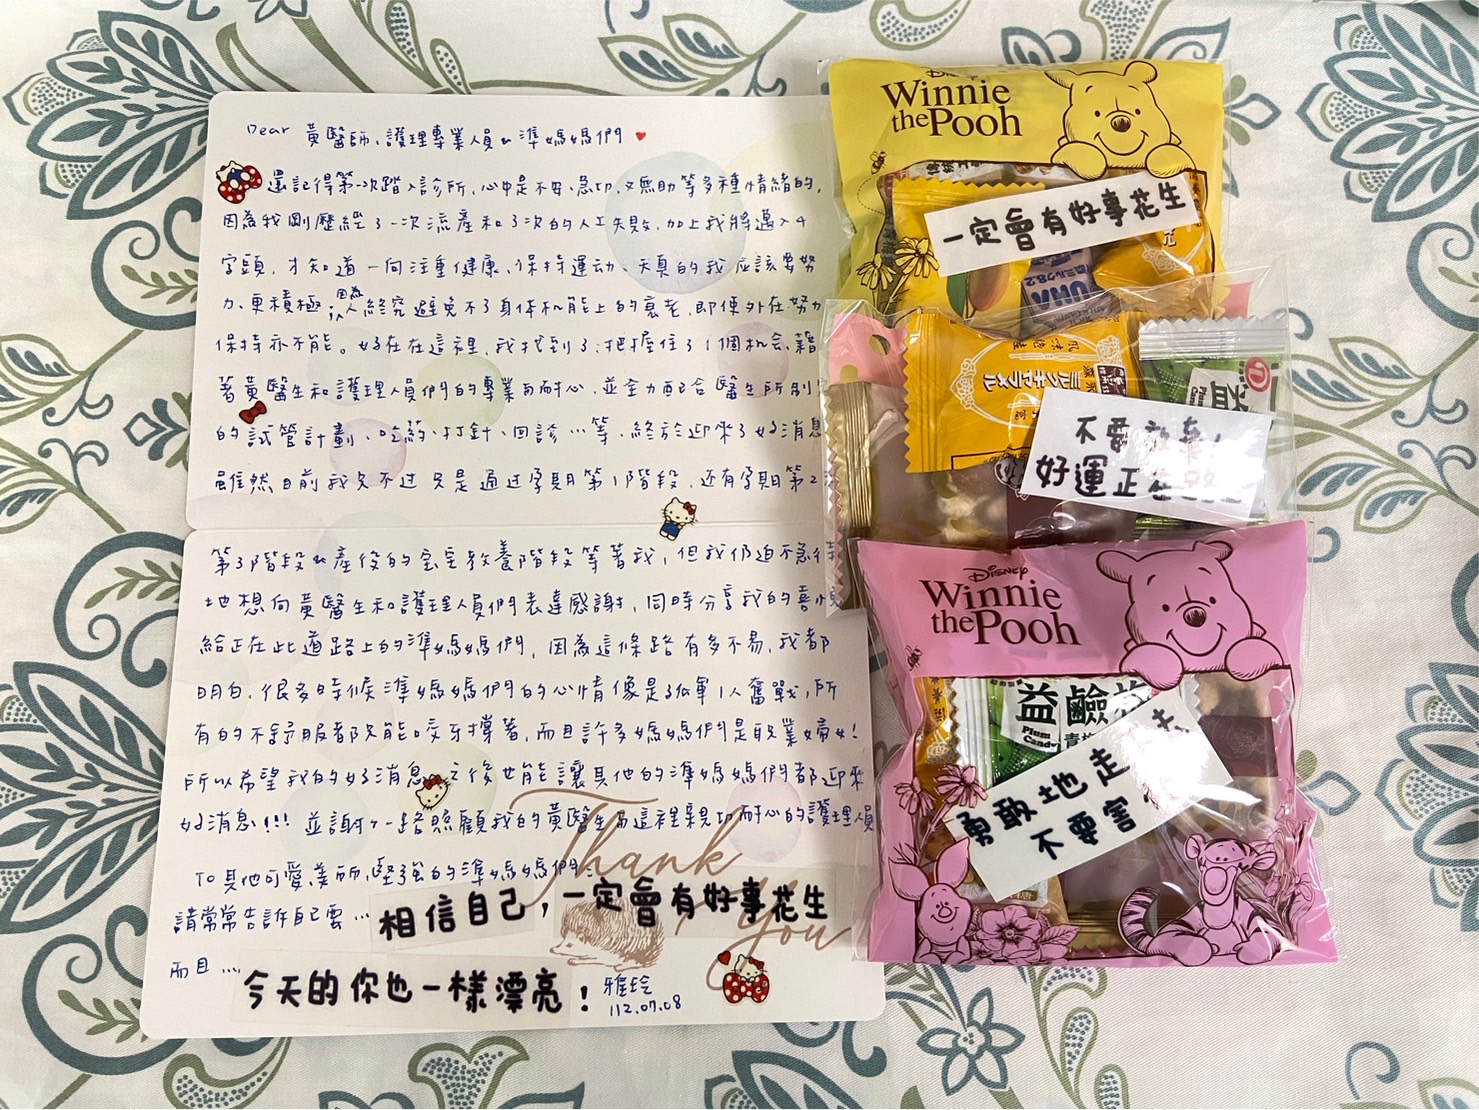 Dear 黃醫師、護理專業人員&準媽媽們
還記得第一次踏入診所,心中是不安、急切、又無助等多種情緒的,
因為我剛歷經了一次流產和3次的人工失敗,加上我將邁入4
字頭,才知道一向注重健康、保持運动、天真的我應該要努
力、更積極,因為人終究避免不了身体机能上的衰老,即使外在努力
保持亦不能。好在在這裡,我找到了、把握住了1個机会,藉
著黃醫生和護理人員們的專業和耐心,並全力配合醫生所
的試管計劃、吃药、打針、回診…等,終於迎來了好消息
雖然目前我只不过只是通过孕期第1階段,还有孕期第2
第3階段&產後的宝宝教養階段等著我,但我仍迫不急待
地想向黃醫生和護理人員們表達感謝,同時分享我的喜悅
給正在此道路上的準媽媽們,因為這條路有多不易,我都
明白,很多時候準媽媽們的心情像是孤軍1人奮戰,所
有的不舒服都只能咬牙撐著,而且許多媽媽們是職業婦女!
所以希望我的好消息之後也能讓其他的準媽媽們都迎來
好消息!!! 並謝謝一路照顧我的黃醫生與這裡親切耐心的護理人員
To 其他可愛、美丽、堅強的準媽媽們:
請常常告訴自己…
相信自己,一定會有好事花生
而且…
今天的你也一樣漂亮!
雅玲
112.07.08
Thank You
Disney
Winnie
the Pooh
一定會有好事花生
不要放棄,
好運正在路上
Disney
Winnie
the Pooh
益鹼梅
Plum
Candy
勇敢地走
不要害